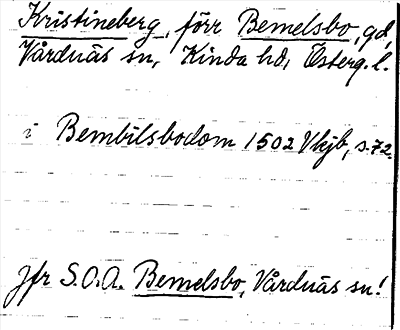 Kristineberg, förr Bemelsbo, gd,
Vårdnäs sn, Kinda hd, Österg. l.
i Bembilsbodom 1502 Vkjb, s. 72.
Jfr S.O.A. Bemelsbo, Vårdnäs sn!